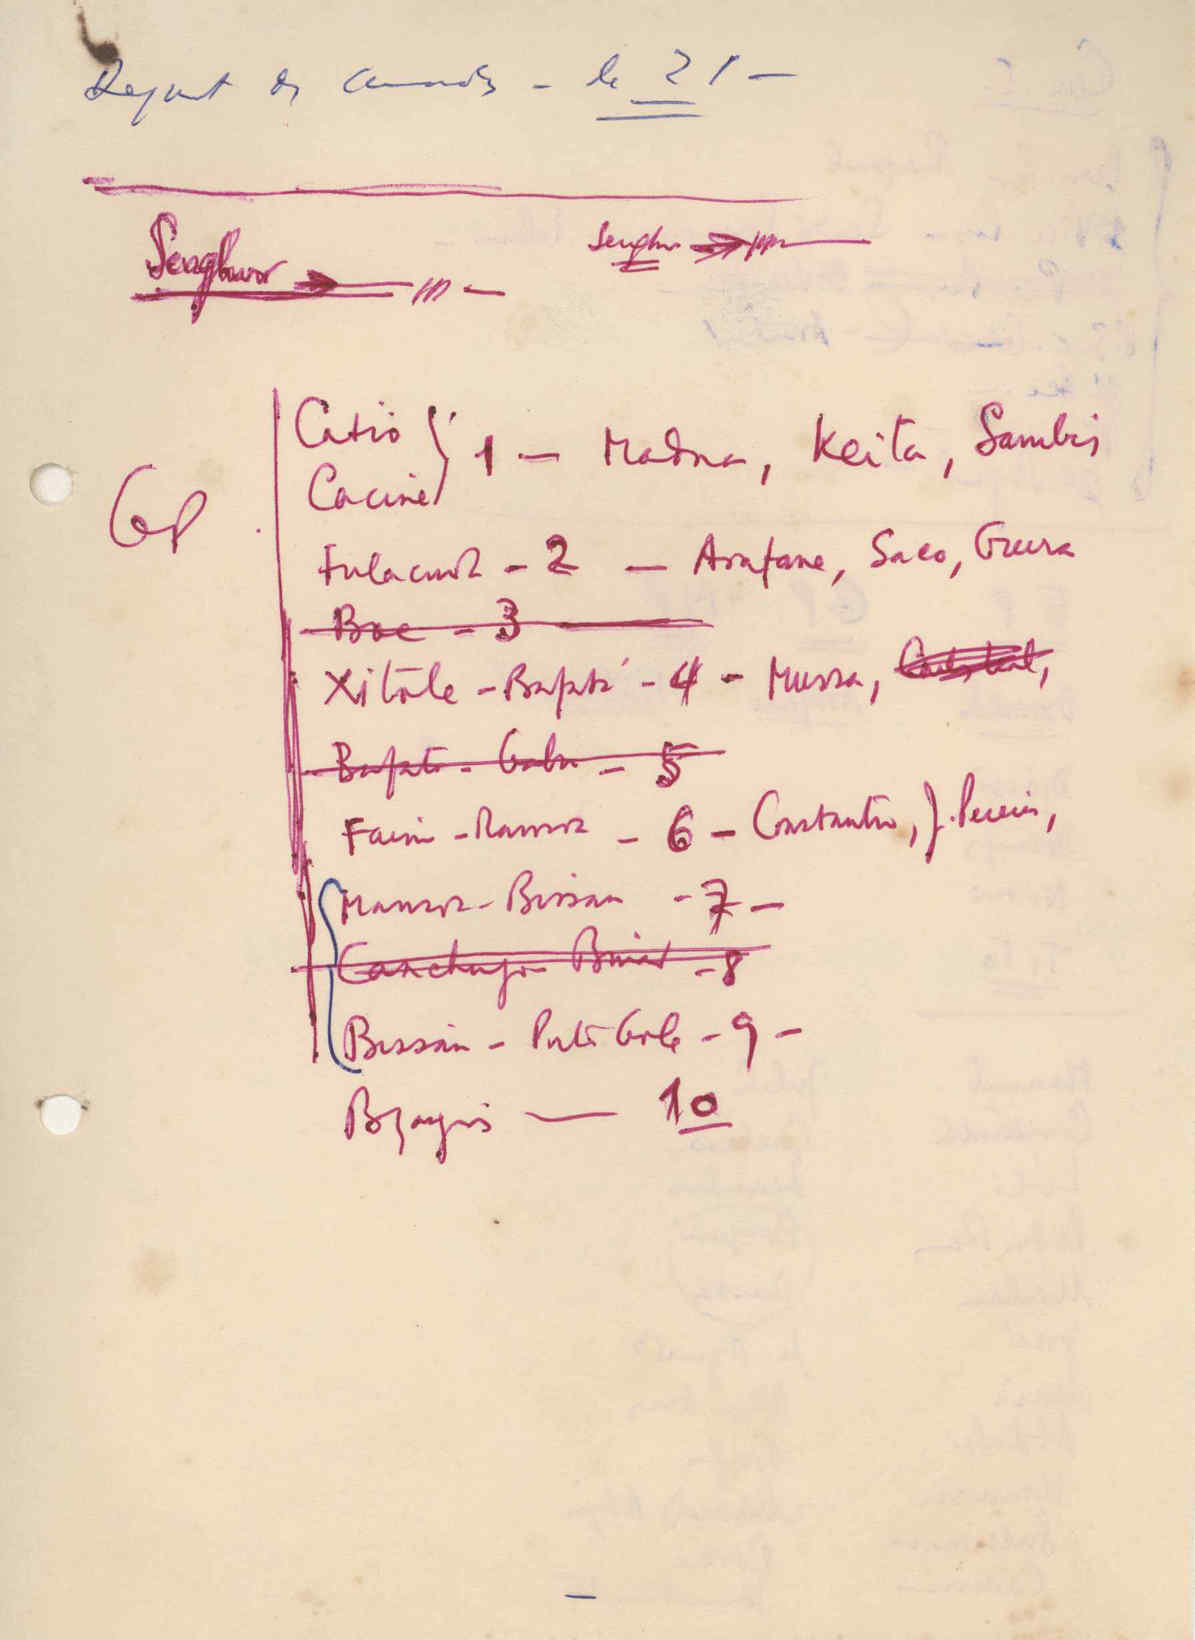 Depart des camarades - le 21 -
Senghor → /// - Senghor → ///
GP
Catió
Cacine } 1 - Madna, Keita, Sambú
Fulacunda - 2 - Arafane, Saco, Guerra
Boe - 3
Xitole - Bafatá - 4 - Mussa,
Bafatá - Gabu - 5
Farim - Mansoa - 6 - Constantino, J. Pereira,
Mansoa - Bissau - 7 -
Canchungo - Biombo - 8
Bissau - Porto Gole - 9 -
Bijagós — 10